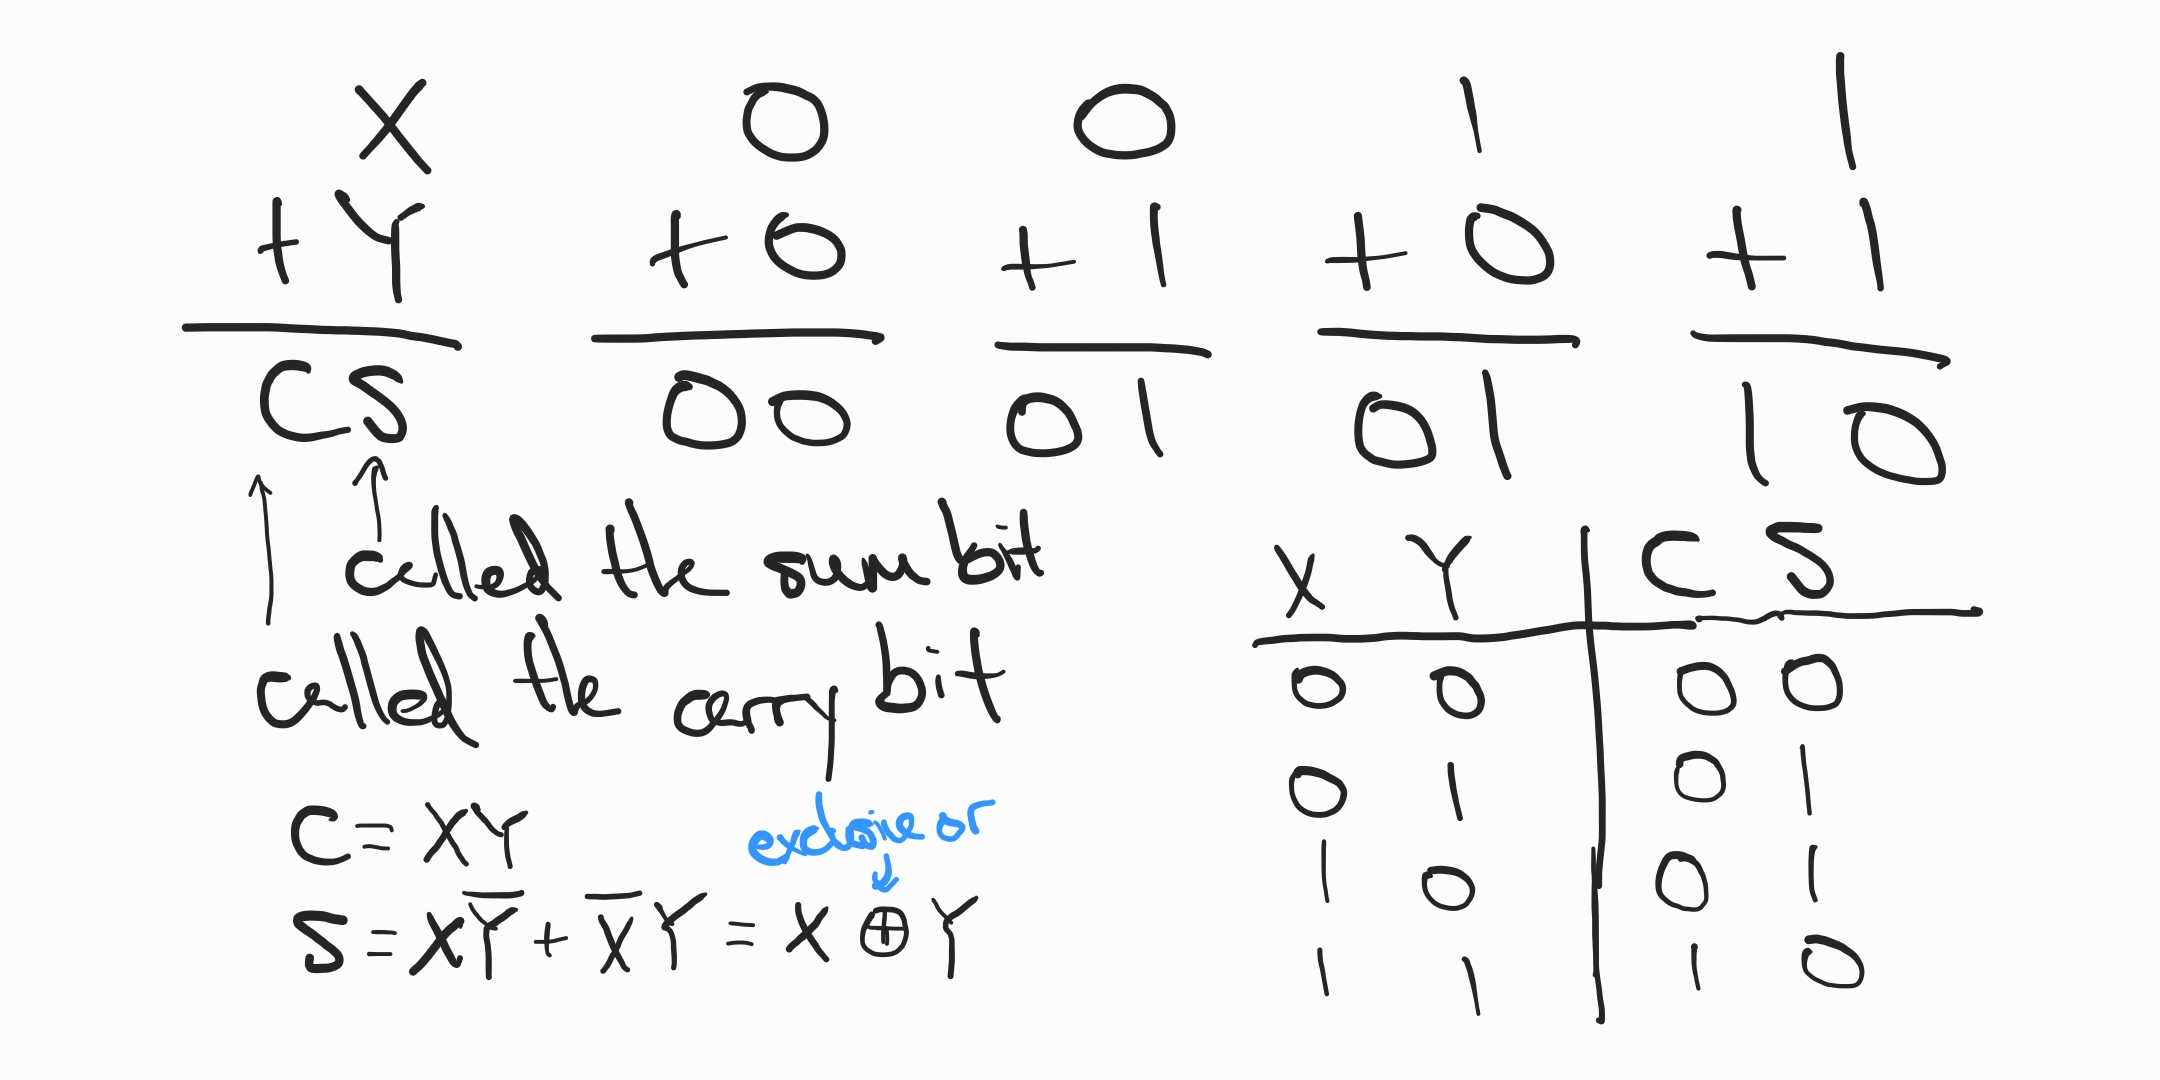 X 0 0 1 1
+ Y + 0 + 1 + 0 + 1
CS 00 01 01 10
called the sum bit
called the carry bit
C = XY
exclusive or
S = XY̅ + X̅Y = X ⊕ Y
X Y C S
0 0 0 0
0 1 0 1
1 0 0 1
1 1 1 0